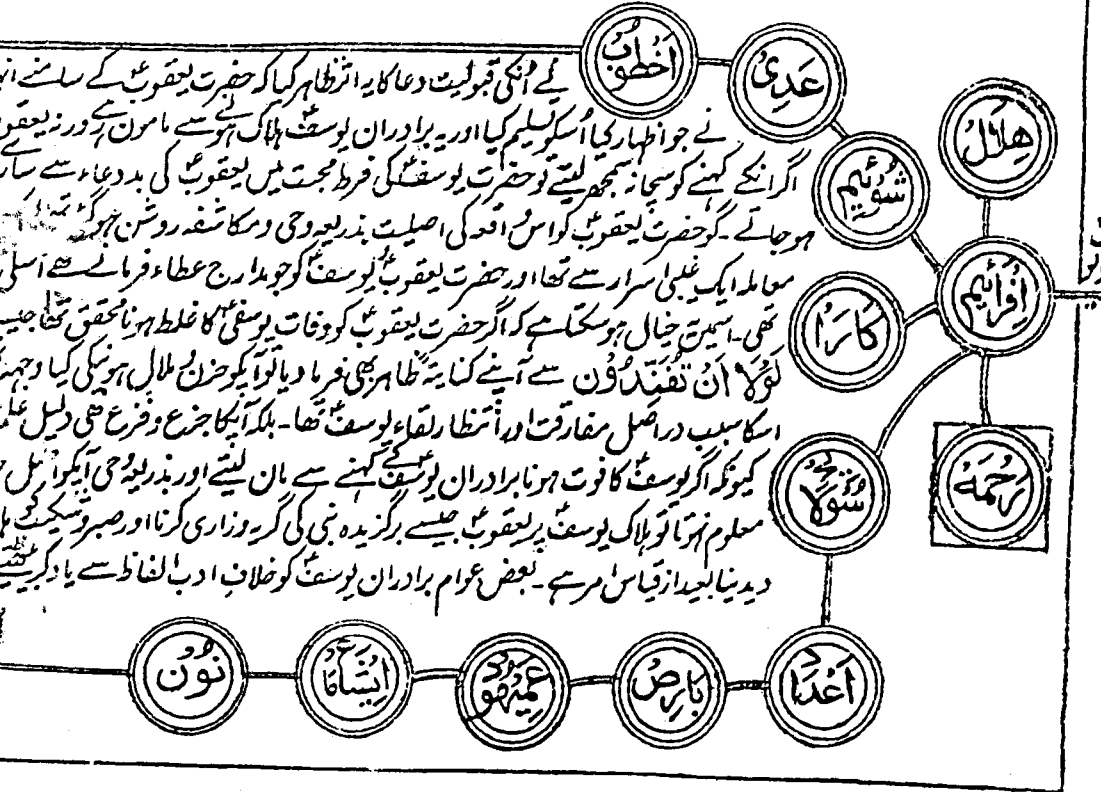 اخطوب
عدی
ھلال
شوئیم
افرائیم
کارا
شولا
رحمہ
نے اُنکی قبولیت دعا کا یہ اثر ظاہر کیا کہ حضرت یعقوبؑ کے سامنے
نے جو اظہار کیا اُسکو تسلیم کیا اور یہ برادران یوسفؑ ہلاک ہونے سے مامون رہے ورنہ
اگر انکے کہنے کو سچا نہ سمجھ لیتے تو حضرت یوسفؑ کی فرط محبت میں یعقوبؑ کی بد دعاء سے
ہو جاتے۔ گو حضرت یعقوبؑ کو اس واقعہ کی اصلیت بذریعہ وحی و مکاشفہ روشن
معاملہ ایک غیبی اسرار سے تھا اور حضرت یعقوبؑ یوسفؑ کو جو مدارج عطاء فرمانے تھے اسلی
تھی۔ اسمیں یہ خیال ہو سکتا ہے کہ اگر حضرت یعقوبؑ کو وفات یوسفؑ کا غلط ہونا محقق تھا
لَوْلَا اَنْ تُفَنِّدُوْنِ سے آپنے کنایۃً ظاہر بھی فرما دیا تو آپکو حزن و ملال ہونیکی کیا وجہ
اسکا سبب دراصل مفارقت اور انتظار لقاء یوسفؑ تھا۔ بلکہ آپکا جزع و فزع ھی دلیل
کیونکہ اگر یوسفؑ کا فوت ہونا برادران یوسفؑ کے کہنے سے مان لیتے اور بذریعہ وحی آپکو
معلوم نہوتا تو ہلاک یوسفؑ پر یعقوبؑ جیسے برگزیدہ نبی کی گریہ وزاری کرنا اور صبر و
دیدینا بعید از قیاس امر ہے۔ بعض عوام برادران یوسفؑ کو خلاف ادب الفاظ سے یاد
اعدا
بارص
عمیھود
نون